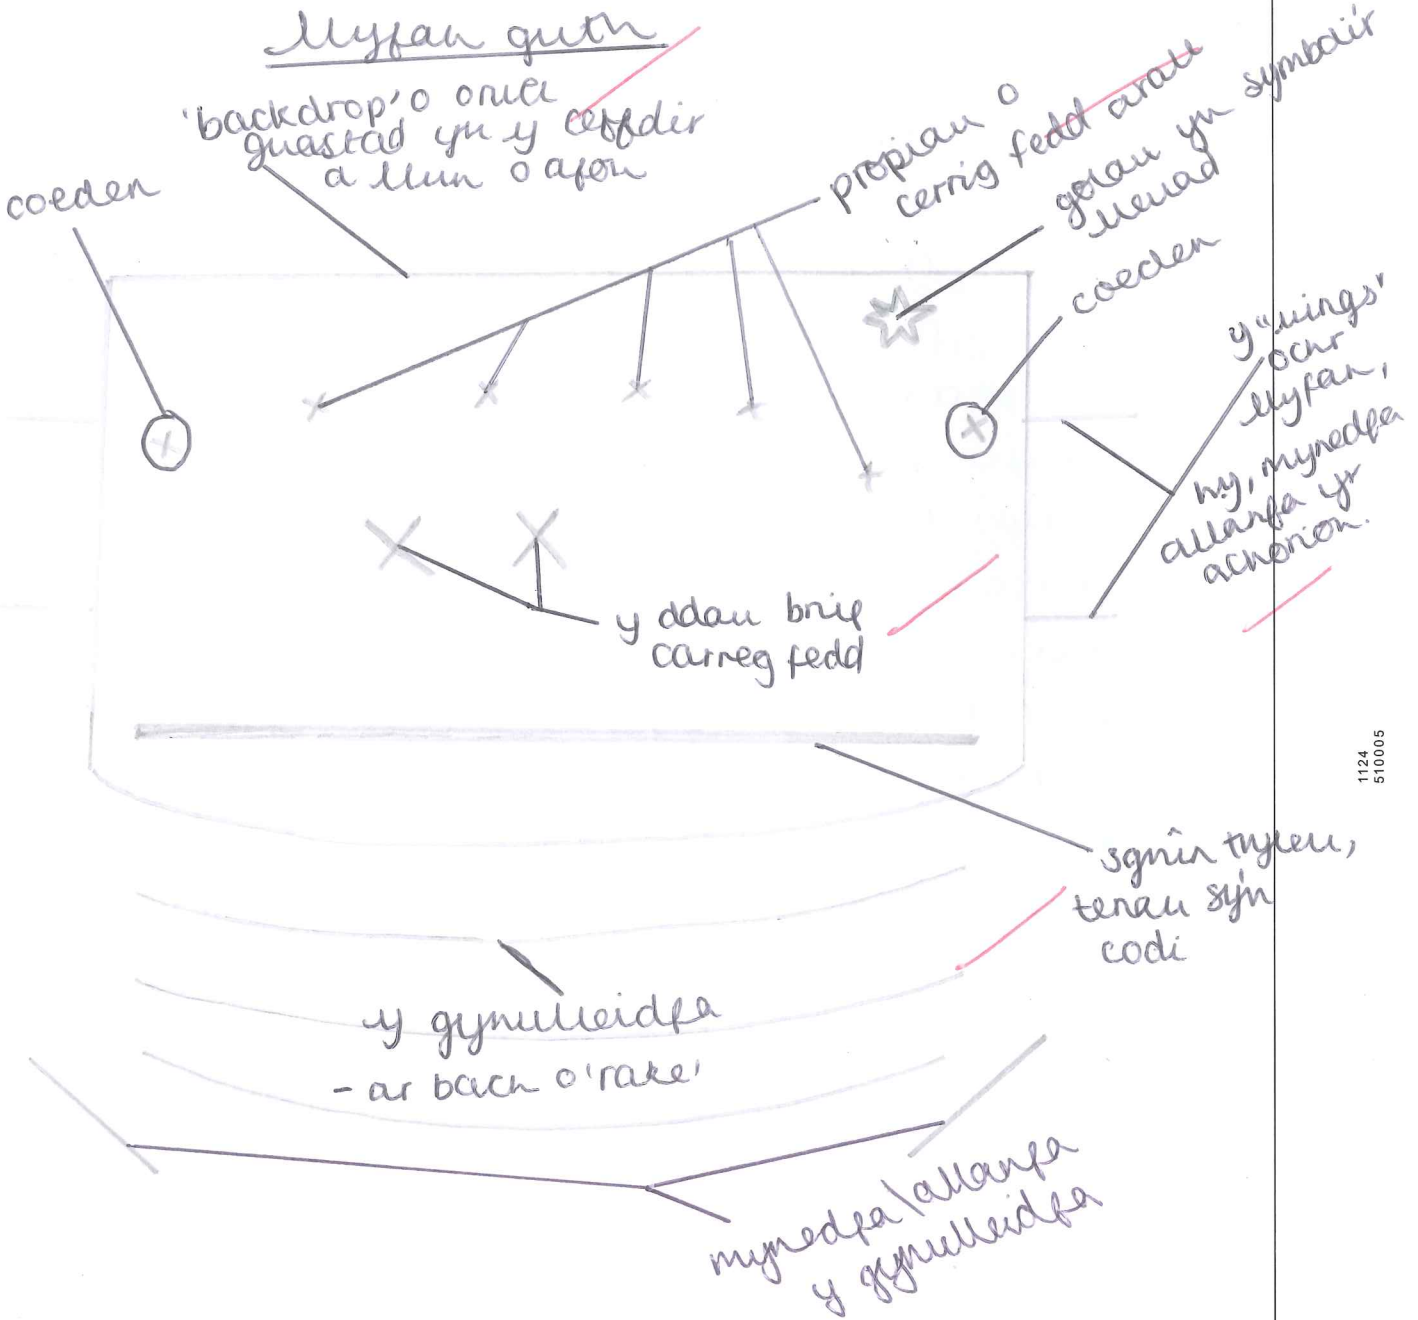 Llwyfan guth
'backdrop' o
guastad yn y cefndir
a llun o afon
coeden
propiau o
cerrig fedd arall
golau yn symboli'r
lleuad
coeden
y "wings"
ochr
llwyfan,
h.y, mynedfa
allanfa yr
actorion.
y ddau brif
carreg fedd
sgrîn tryleu,
tenau sy'n
codi
y gynulleidfa
- ar bach o 'rake'
mynedfa\allanfa
y gynulleidfa
1124
510005